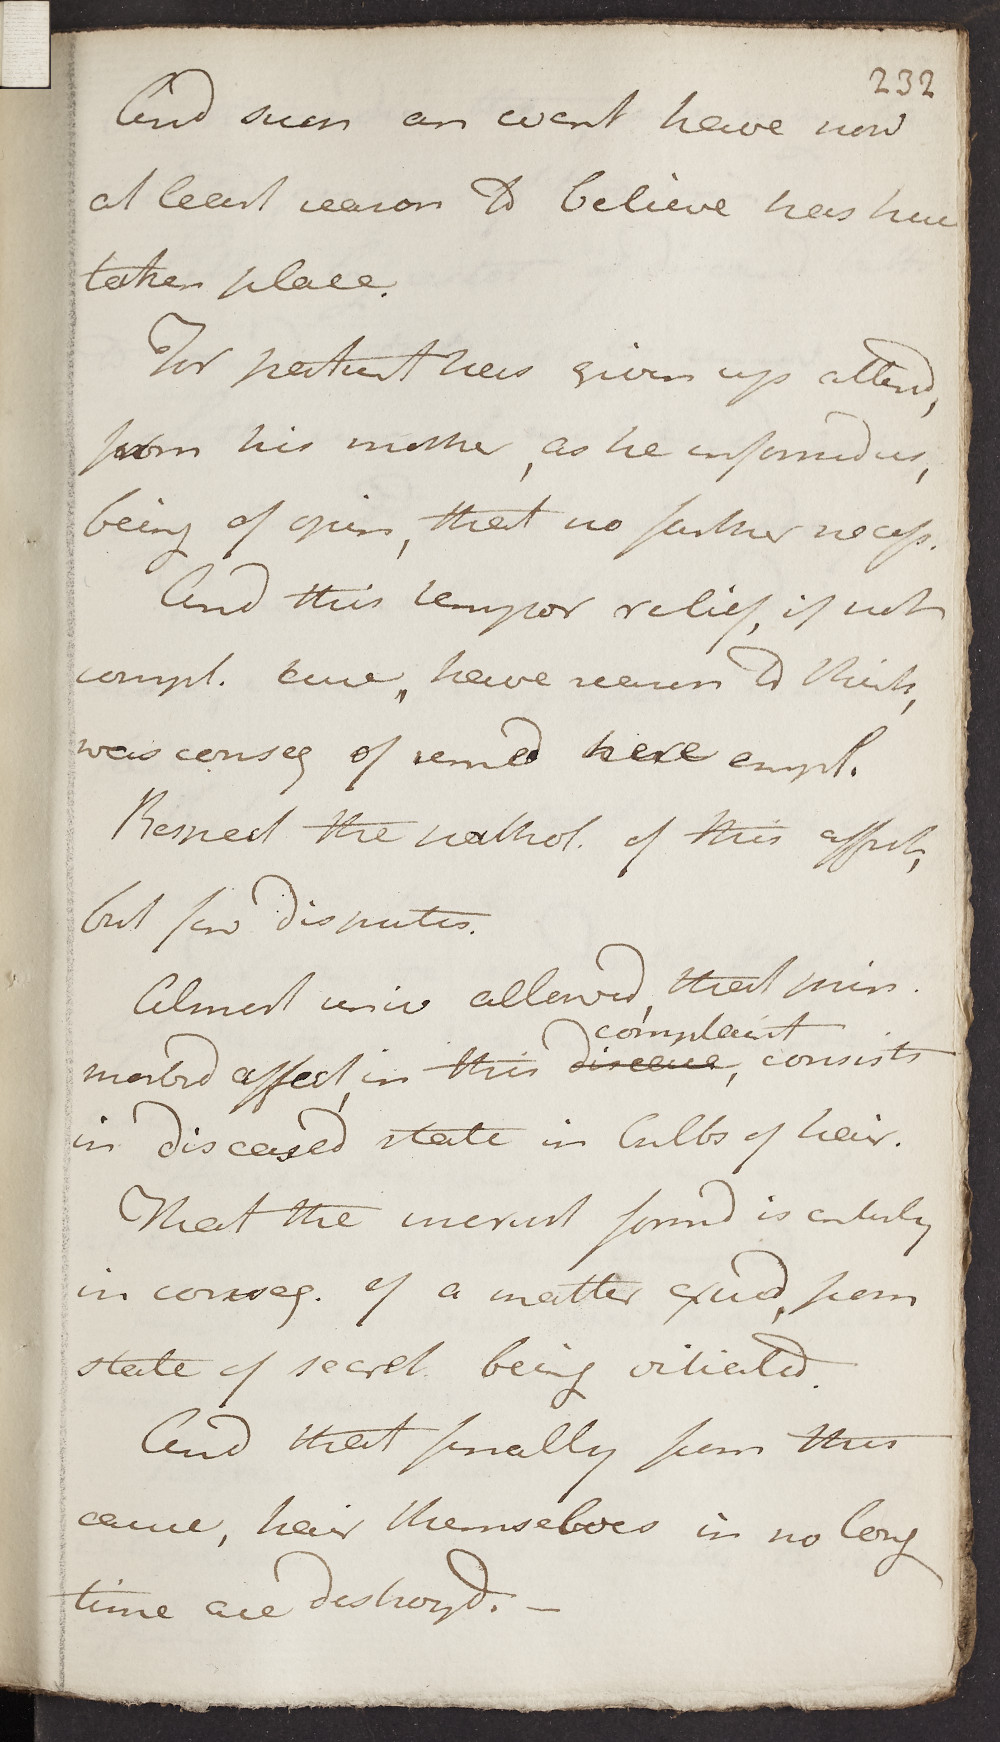 232
And such an event have now
at least reason to believe has here
taken place.
For patient has given up attend,
from his mother, as he informed us,
being of opin, that no further necess.
And this tempor relief, if not
compl. cure, have reason to think,
was conseq of remed here empl.
Respect the pathol. of this affect,
but few disputes.
Almost univ allowed, that prin.
complaint
morbid affect, in this disease, consists
in diseased state in bulbs of hair.
That the incrust formd is entirely
in conseq. of a matter exud, from
state of secret. being vitiated.
And that finally from this
cause, hair themselves in no long
time are destroyd. —